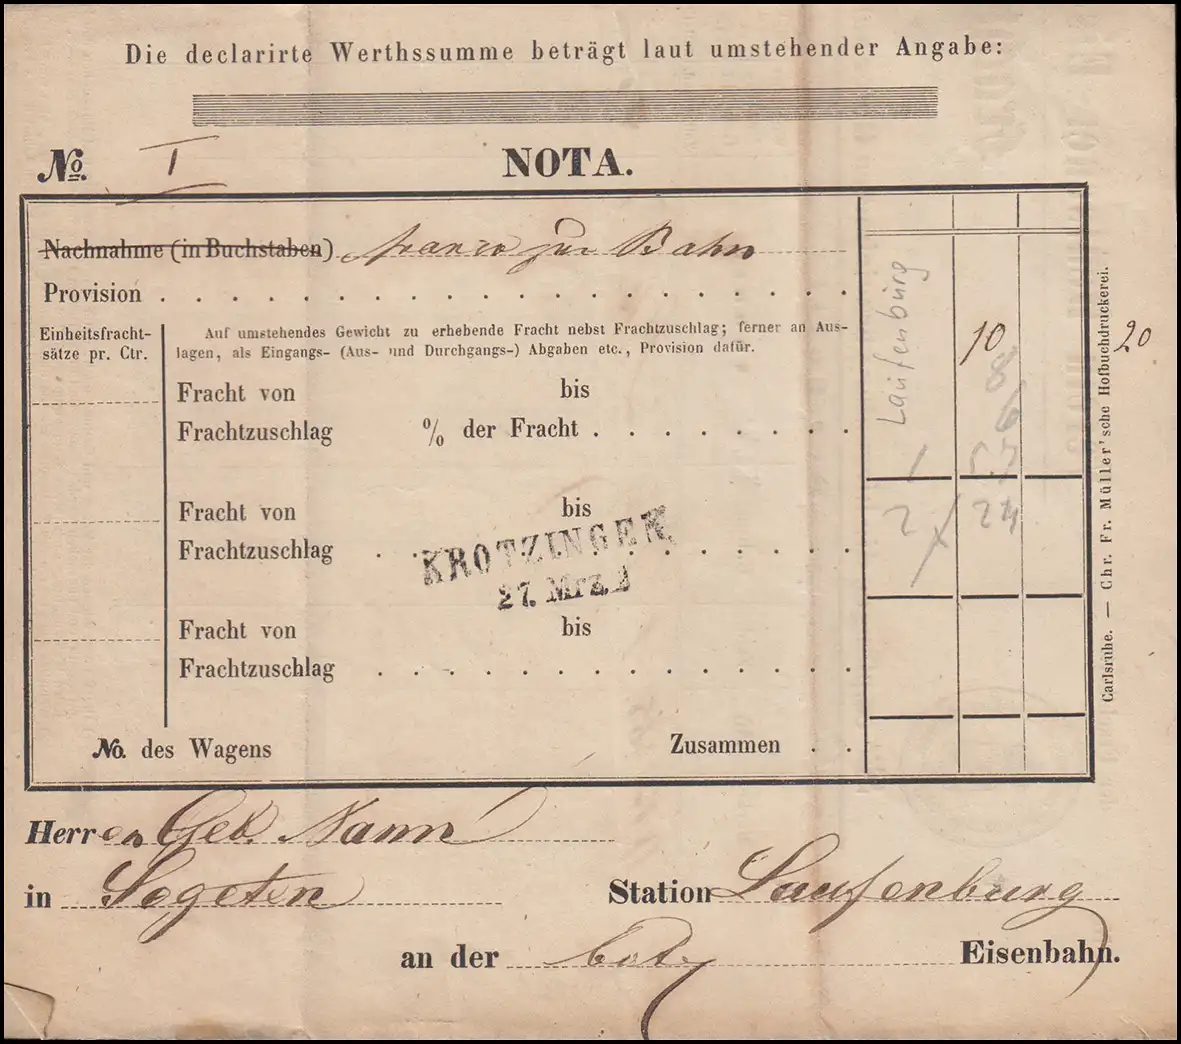 Die declarirte Werthssumme beträgt laut umstehender Angabe:
No. I
NOTA.
Nachnahme (in Buchstaben) franco zur Bahn
Provision . . . . . . . . . . . . . . . . . .
Einheitsfracht-
sätze pr. Ctr.
Auf umstehendes Gewicht zu erhebende Fracht nebst Frachtzuschlag; ferner an Aus-
lagen, als Eingangs- (Aus- und Durchgangs-) Abgaben etc., Provision dafür.
Fracht von bis
Frachtzuschlag % der Fracht . . . . . . . .
Fracht von bis
Frachtzuschlag . . . . . . . . . . . . .
KROTZINGEN
27. Mrz.
Fracht von bis
Frachtzuschlag . . . . . . . . . . . . .
No. des Wagens Zusammen . .
Laufenburg
10
20
8
6
2 24
Carlsruhe. — Chr. Fr. Müller'sche Hofbuchdruckerei.
Herren Geb. Nann
in Segeten Station Laufenburg
an der bad. Eisenbahn.